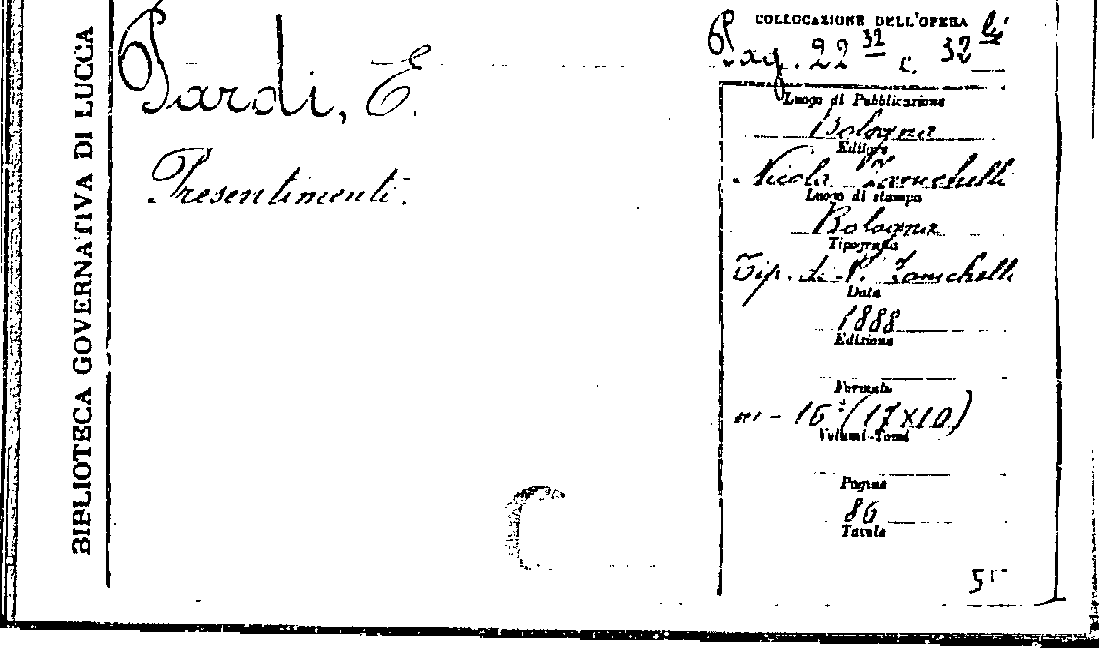 BIBLIOTECA GOVERNATIVA DI LUCCA
Pardi, E.
Presentimenti.
COLLOCAZIONE DELL'OPERA
Pag. 22 32
Luogo di Pubblicazione
Bologna
Editore
Nicola Zanichelli
Luogo di stampa
Bologna
Tipografia
Tip. di N. Zanichelli
Data
1888
Edizione
Formato
in - 16° (17x10)
Volumi-Tomi
Pagine
86
Tavole